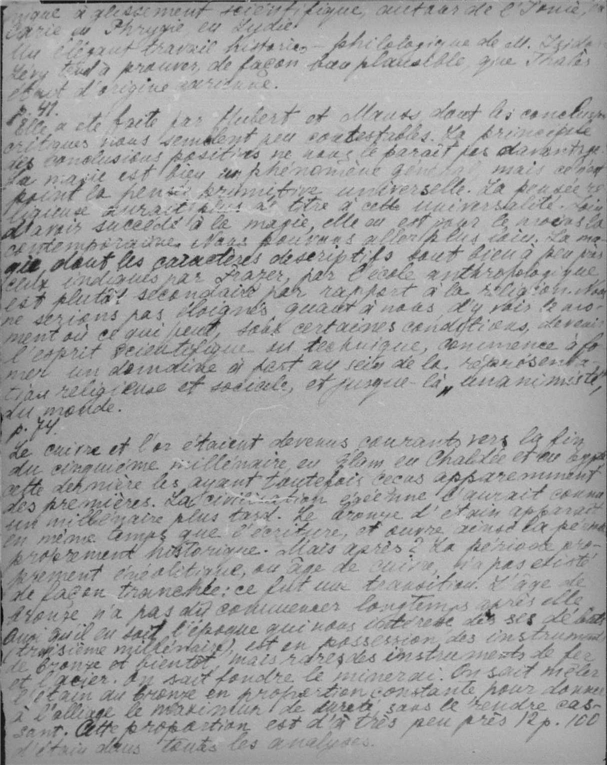 à glissement scientifique, autour de l'Ionie, en
Carie en Phrygie, en Lydie.
Un élégant travail historico-philologique de M. Isido
Levy tend à prouver de façon bien plausible, que Thalès
était d'origine carienne.
p. 41.
Elle a été faite par Hubert et Mauss, dont les conclusions
critiques nous semblent peu contestables. La principale
des conclusions positives ne nous le paraît pas davantage.
La magie est bien un phénomène général, mais ce n'est
point la pensée primitive universelle. La pensée re
ligieuse aurait plus de titre à cette universalité. Loin
d'avoir succédé à la magie, elle en est pour le moins la
contemporaine. Nous pouvons aller plus loin. La ma
gie, dont les caractères descriptifs sont bien à peu près
ceux indiqués par Frazer, par l'école anthropologique
est plutôt secondaire par rapport à la religion. Nous
ne serions pas éloignés quant à nous d'y voir le mo-
ment où ce qui peut, sous certaines conditions, devenir
l'esprit scientifique ou technique, commence à fo
rmer un domaine à part au sein de la représenta
tion religieuse et sociale, et jusque-là „unanimiste"
du monde.
p. 74
Le cuivre et l'or étaient devenus courants vers la fin
du cinquième millénaire, en Elam, en Chaldée et en Egypte
cette dernière les ayant toutefois reçus apparemment
des premières. La civilisation égéenne l'aurait connu
un millénaire plus tard. Le bronze d'étain apparait
en même temps que l'écriture, et ouvre ainsi la période
proprement historique. Mais après? La période pro-
prement énéolitique, ou âge de cuivre, n'a pas existé
de façon tranchée: ce fut une transition. L'âge de
bronze n'a pas dû commencer longtemps après elle
quoi qu'il en soit, l'époque qui nous intéresse dès son début
(troisième millénaire), est en possession des instruments
de bronze et bientôt, mais rares des instruments de fer
et d'acier. On sait fondre le minerai. On sait mêler
l'étain au bronze en proportion constante pour donner
à l'alliage le maximum de dureté, sans le rendre cas-
sant. Cette proportion est d'à très peu près 12 p. 100
d'étain dans toutes les analyses.